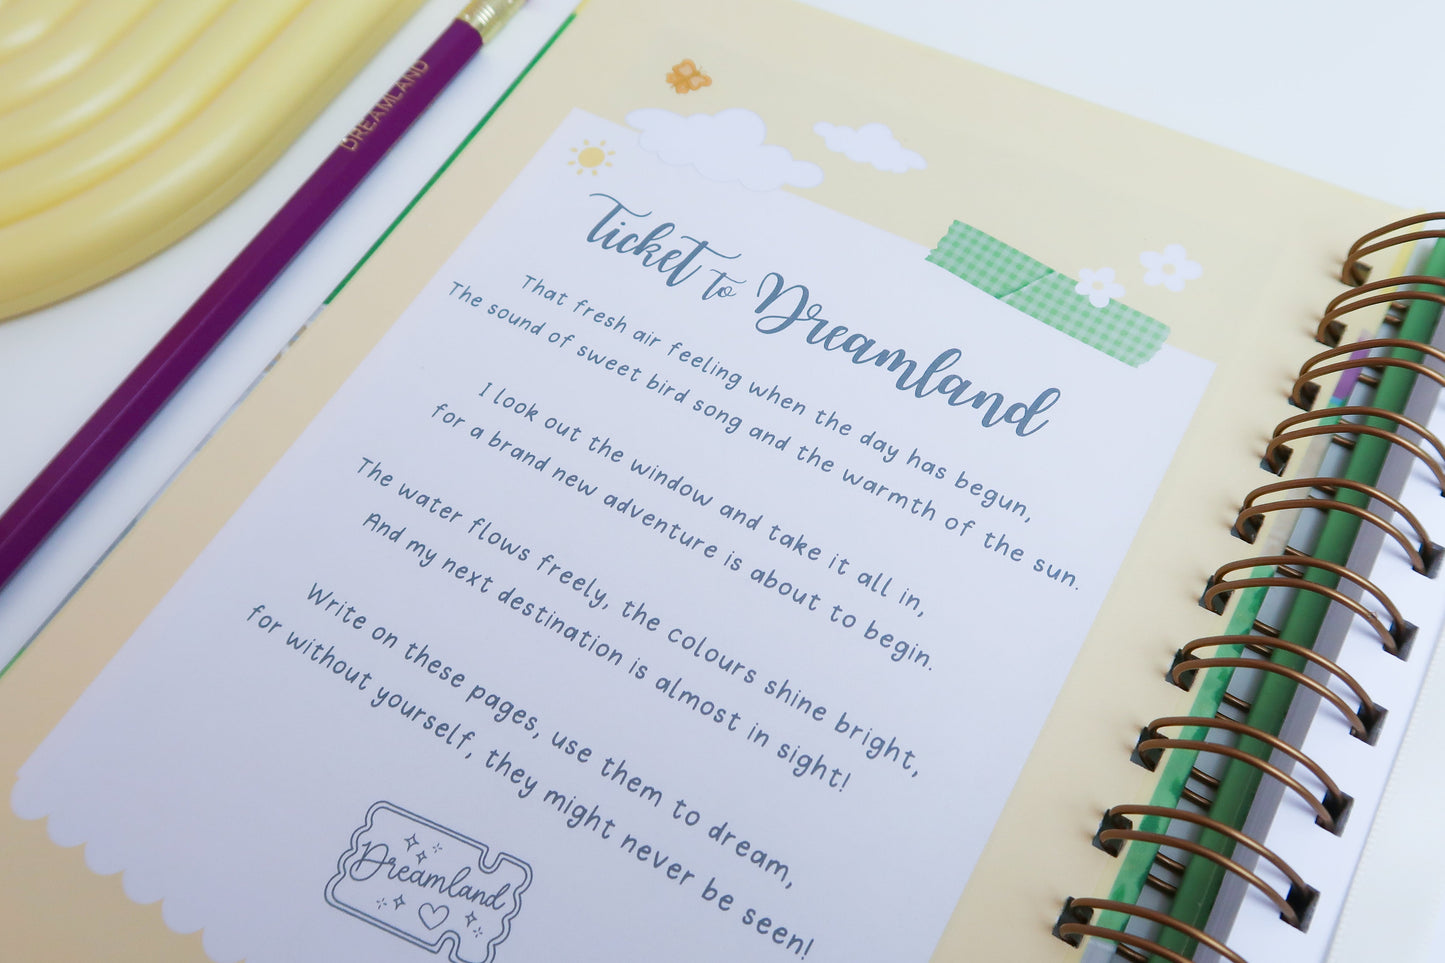 DREAMLAND
Ticket to Dreamland
That fresh air feeling when the day has begun,
The sound of sweet bird song and the warmth of the sun.
I look out the window and take it all in,
for a brand new adventure is about to begin.
The water flows freely, the colours shine bright,
And my next destination is almost in sight!
Write on these pages, use them to dream,
for without yourself, they might never be seen!
Dreamland